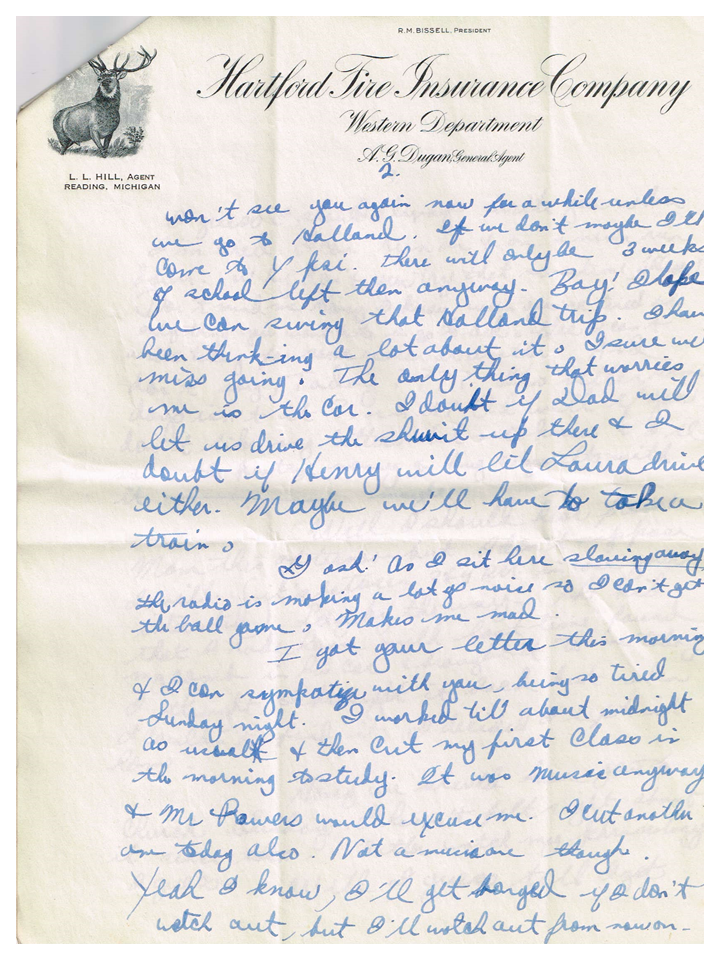 R.M. BISSELL, PRESIDENT
Hartford Fire Insurance Company
Western Department
A.G. Dugan, General Agent
L. L. HILL, AGENT
READING, MICHIGAN
2.
won't see you again now for a while unless
we go to Holland. If we don't maybe I'll
come to Ypsi. there will only be 3 weeks
of school left then anyway. Boy! I hope
we can swing that Holland trip. I have
been think-ing a lot about it. I sure
miss going. The only thing that worries
me is the car. I doubt if Dad will
let us drive the up there & I
doubt if Henry will let Laura drive
either. Maybe we'll have to take a
train.
Gosh! As I sit here slaving away,
the radio is making a lot of noise so I can't get
the ball game. Makes me mad.
I got your letter this morning
& I can sympathize with you, being so tired
Sunday night. I worked till about midnight
as usual & then cut my first class in
the morning to study. It was music anyway
& Mr Powers would excuse me. I cut another
one today also. Not a music one though.
Yeah I know, I'll get if I don't
watch out, but I'll watch out from now on-